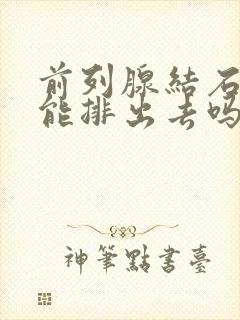 前列腺結石
能排出去吗
神筆點書臺